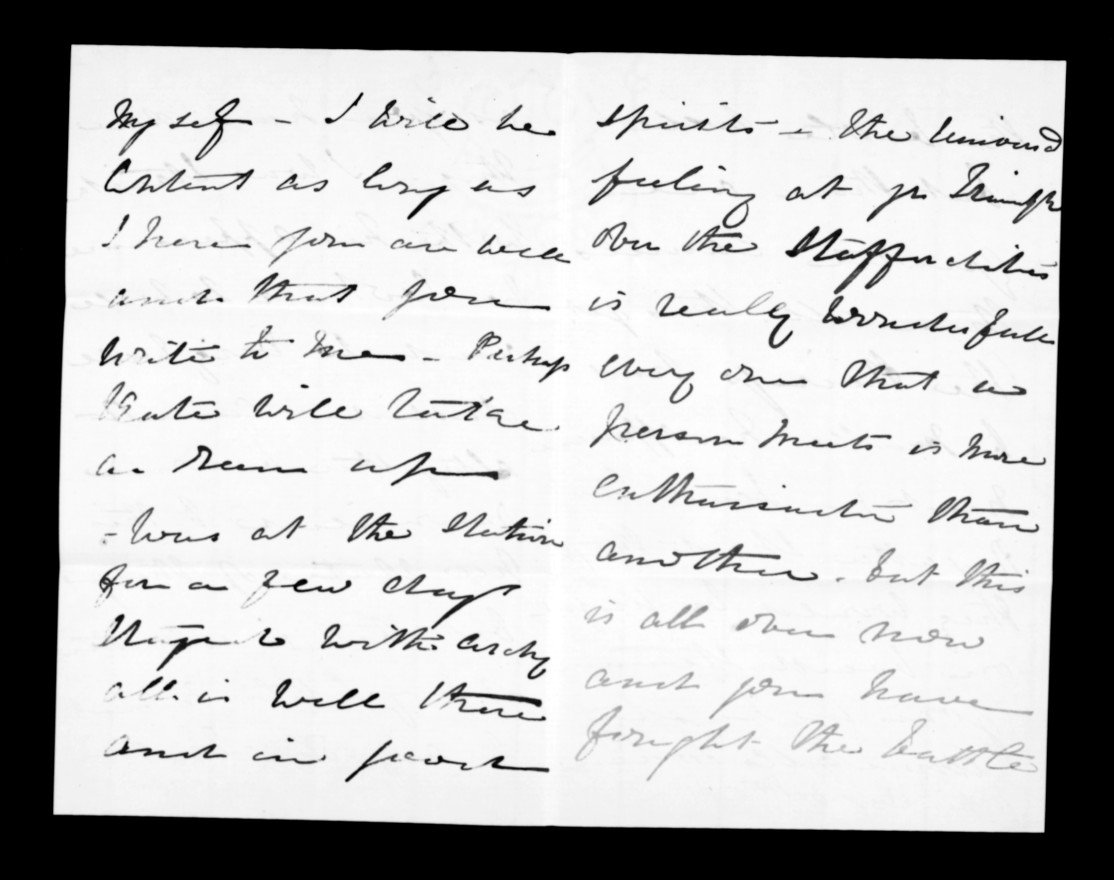 My self - I will be
Content as long as
I know you are well
and that you
write to me - Perhaps
Kate will take
a run up
- was at the Station
for a few days
Stayed with Archy
all is well there
and in good
spirits - the universal
feeling at yr Triumph
over the Staffordites
is really wonderful
every one that a
person meets is more
enthusiastic than
another. but this
is all over now
and you have
fought the battle